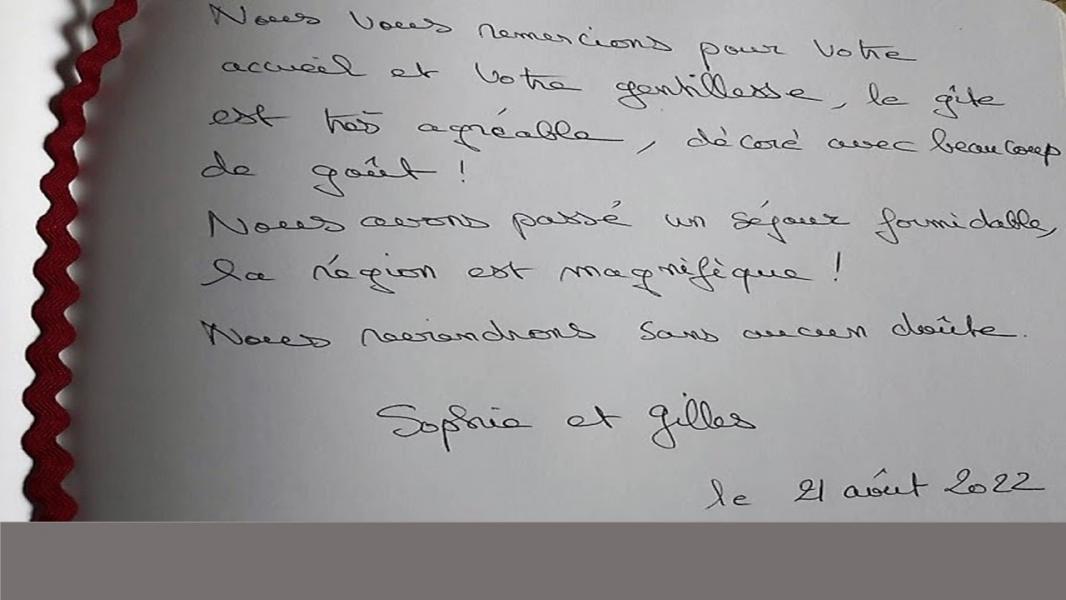 Nous vous remercions pour votre
accueil et votre gentillesse, le gîte
est très agréable, décoré avec beaucoup
de goût !
Nous avons passé un séjour formidable,
la région est magnifique !
Nous reviendrons sans aucun doûte.
Sophie et Gilles
le 21 août 2022